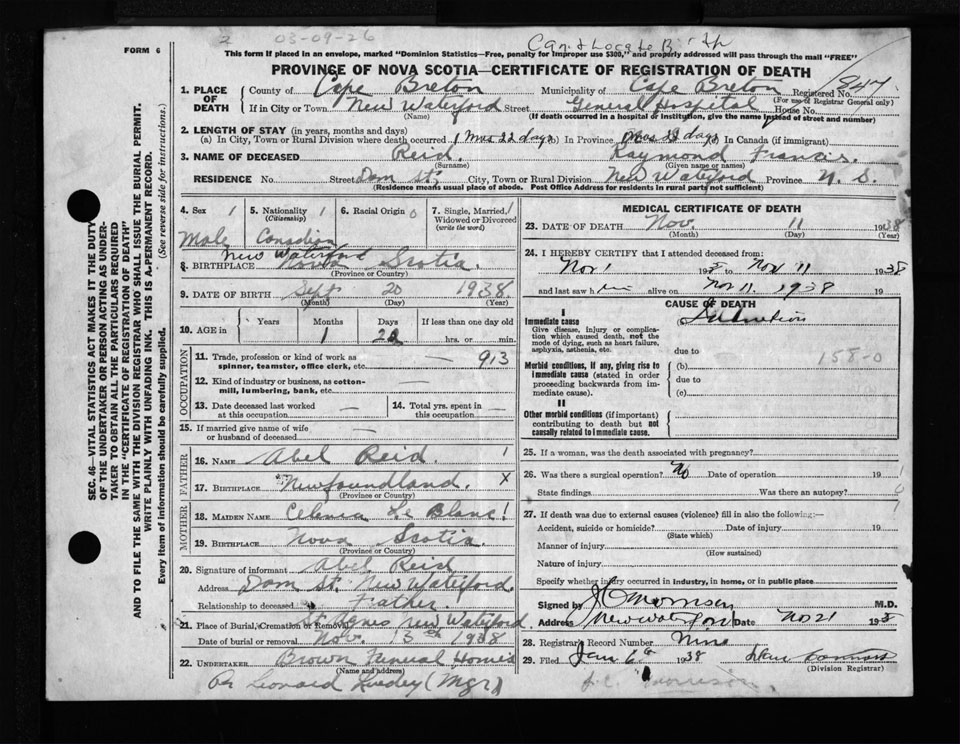 2 03-09-26
Can & Locate B
FORM 6
This form if placed in an envelope, marked "Dominion Statistics—Free, penalty for improper use $300," and properly addressed will pass through the mail "FREE"
PROVINCE OF NOVA SCOTIA—CERTIFICATE OF REGISTRATION OF DEATH
1. PLACE OF DEATH
County of Cape Breton Municipality of Cape Breton Registered No. 847
(For use of Registrar General only)
If in City or Town New Waterford Street General Hospital House No.
(Name) (If death occurred in a hospital or institution, give the name instead of street and number)
2. LENGTH OF STAY (in years, months and days)
(a) In City, Town or Rural Division where death occurred 1 Mos 22 days (b) In Province 1 Mos 22 days (c) In Canada (if immigrant)
3. NAME OF DECEASED Reid. Raymond Francis.
(Surname) (Given name or names)
RESIDENCE No. Street Dom St. City, Town or Rural Division New Waterford Province N. S.
(Residence means usual place of abode. Post Office Address for residents in rural parts not sufficient)
4. Sex 1 Male
5. Nationality 1 (Citizenship) Canadian
6. Racial Origin 0
7. Single, Married, Widowed or Divorced (write the word) 1
New Waterford
8. BIRTHPLACE Nova Scotia.
(Province or Country)
9. DATE OF BIRTH Sept 20 1938.
(Month) (Day) (Year)
10. AGE in Years Months Days If less than one day old
1 22 hrs. or min.
OCCUPATION
11. Trade, profession or kind of work as spinner, teamster, office clerk, etc. — 913
12. Kind of industry or business, as cotton-mill, lumbering, bank, etc. —
13. Date deceased last worked at this occupation —
14. Total yrs. spent in this occupation —
15. If married give name of wife or husband of deceased —
FATHER
16. NAME Abel Reid. 1
17. BIRTHPLACE Newfoundland. X
(Province or Country)
MOTHER
18. MAIDEN NAME Le Blanc!
19. BIRTHPLACE Nova Scotia.
(Province or Country)
20. Signature of informant Abel Reid
Address Dom St. New Waterford.
Relationship to deceased Father.
21. Place of Burial, Cremation or Removal St Agnes New Waterford.
Date of burial or removal Nov. 13th 1938
22. UNDERTAKER Brown Funeral Homes
(Name and address)
Per Leonard (Mgr)
MEDICAL CERTIFICATE OF DEATH
23. DATE OF DEATH Nov. 11 1938
(Month) (Day) (Year)
24. I HEREBY CERTIFY that I attended deceased from:
Nov 1 193 to Nov 11 1938
and last saw him alive on Nov 11. 1938 19
CAUSE OF DEATH
I
Immediate cause
Give disease, injury or complication which caused death, not the mode of dying, such as heart failure, asphyxia, asthenia, etc.
due to
Morbid conditions, if any, giving rise to immediate cause (stated in order proceeding backwards from immediate cause).
(b) 158-0
due to
(c)
II
Other morbid conditions (if important) contributing to death but not causally related to immediate cause.
25. If a woman, was the death associated with pregnancy?
26. Was there a surgical operation? No Date of operation 19
State findings Was there an autopsy?
27. If death was due to external causes (violence) fill in also the following:—
Accident, suicide or homicide? Date of injury 19
(State which)
Manner of injury
(How sustained)
Nature of injury
Specify whether injury occurred in industry, in home, or in public place
Signed by M.D.
Address New Waterford Date Nov 21 193
28. Registrar's Record Number Nine
29. Filed Jan 6th 1938
(Division Registrar)
SEC. 46—VITAL STATISTICS ACT MAKES IT THE DUTY
OF THE UNDERTAKER OR PERSON ACTING AS UNDERTAKER TO OBTAIN ALL THE PARTICULARS REQUIRED
IN THE "CERTIFICATE OF REGISTRATION OF DEATH"
AND TO FILE THE SAME WITH THE DIVISION REGISTRAR WHO SHALL ISSUE THE BURIAL PERMIT.
WRITE PLAINLY WITH UNFADING INK. THIS IS A PERMANENT RECORD.
Every item of information should be carefully supplied. (See reverse side for instructions.)